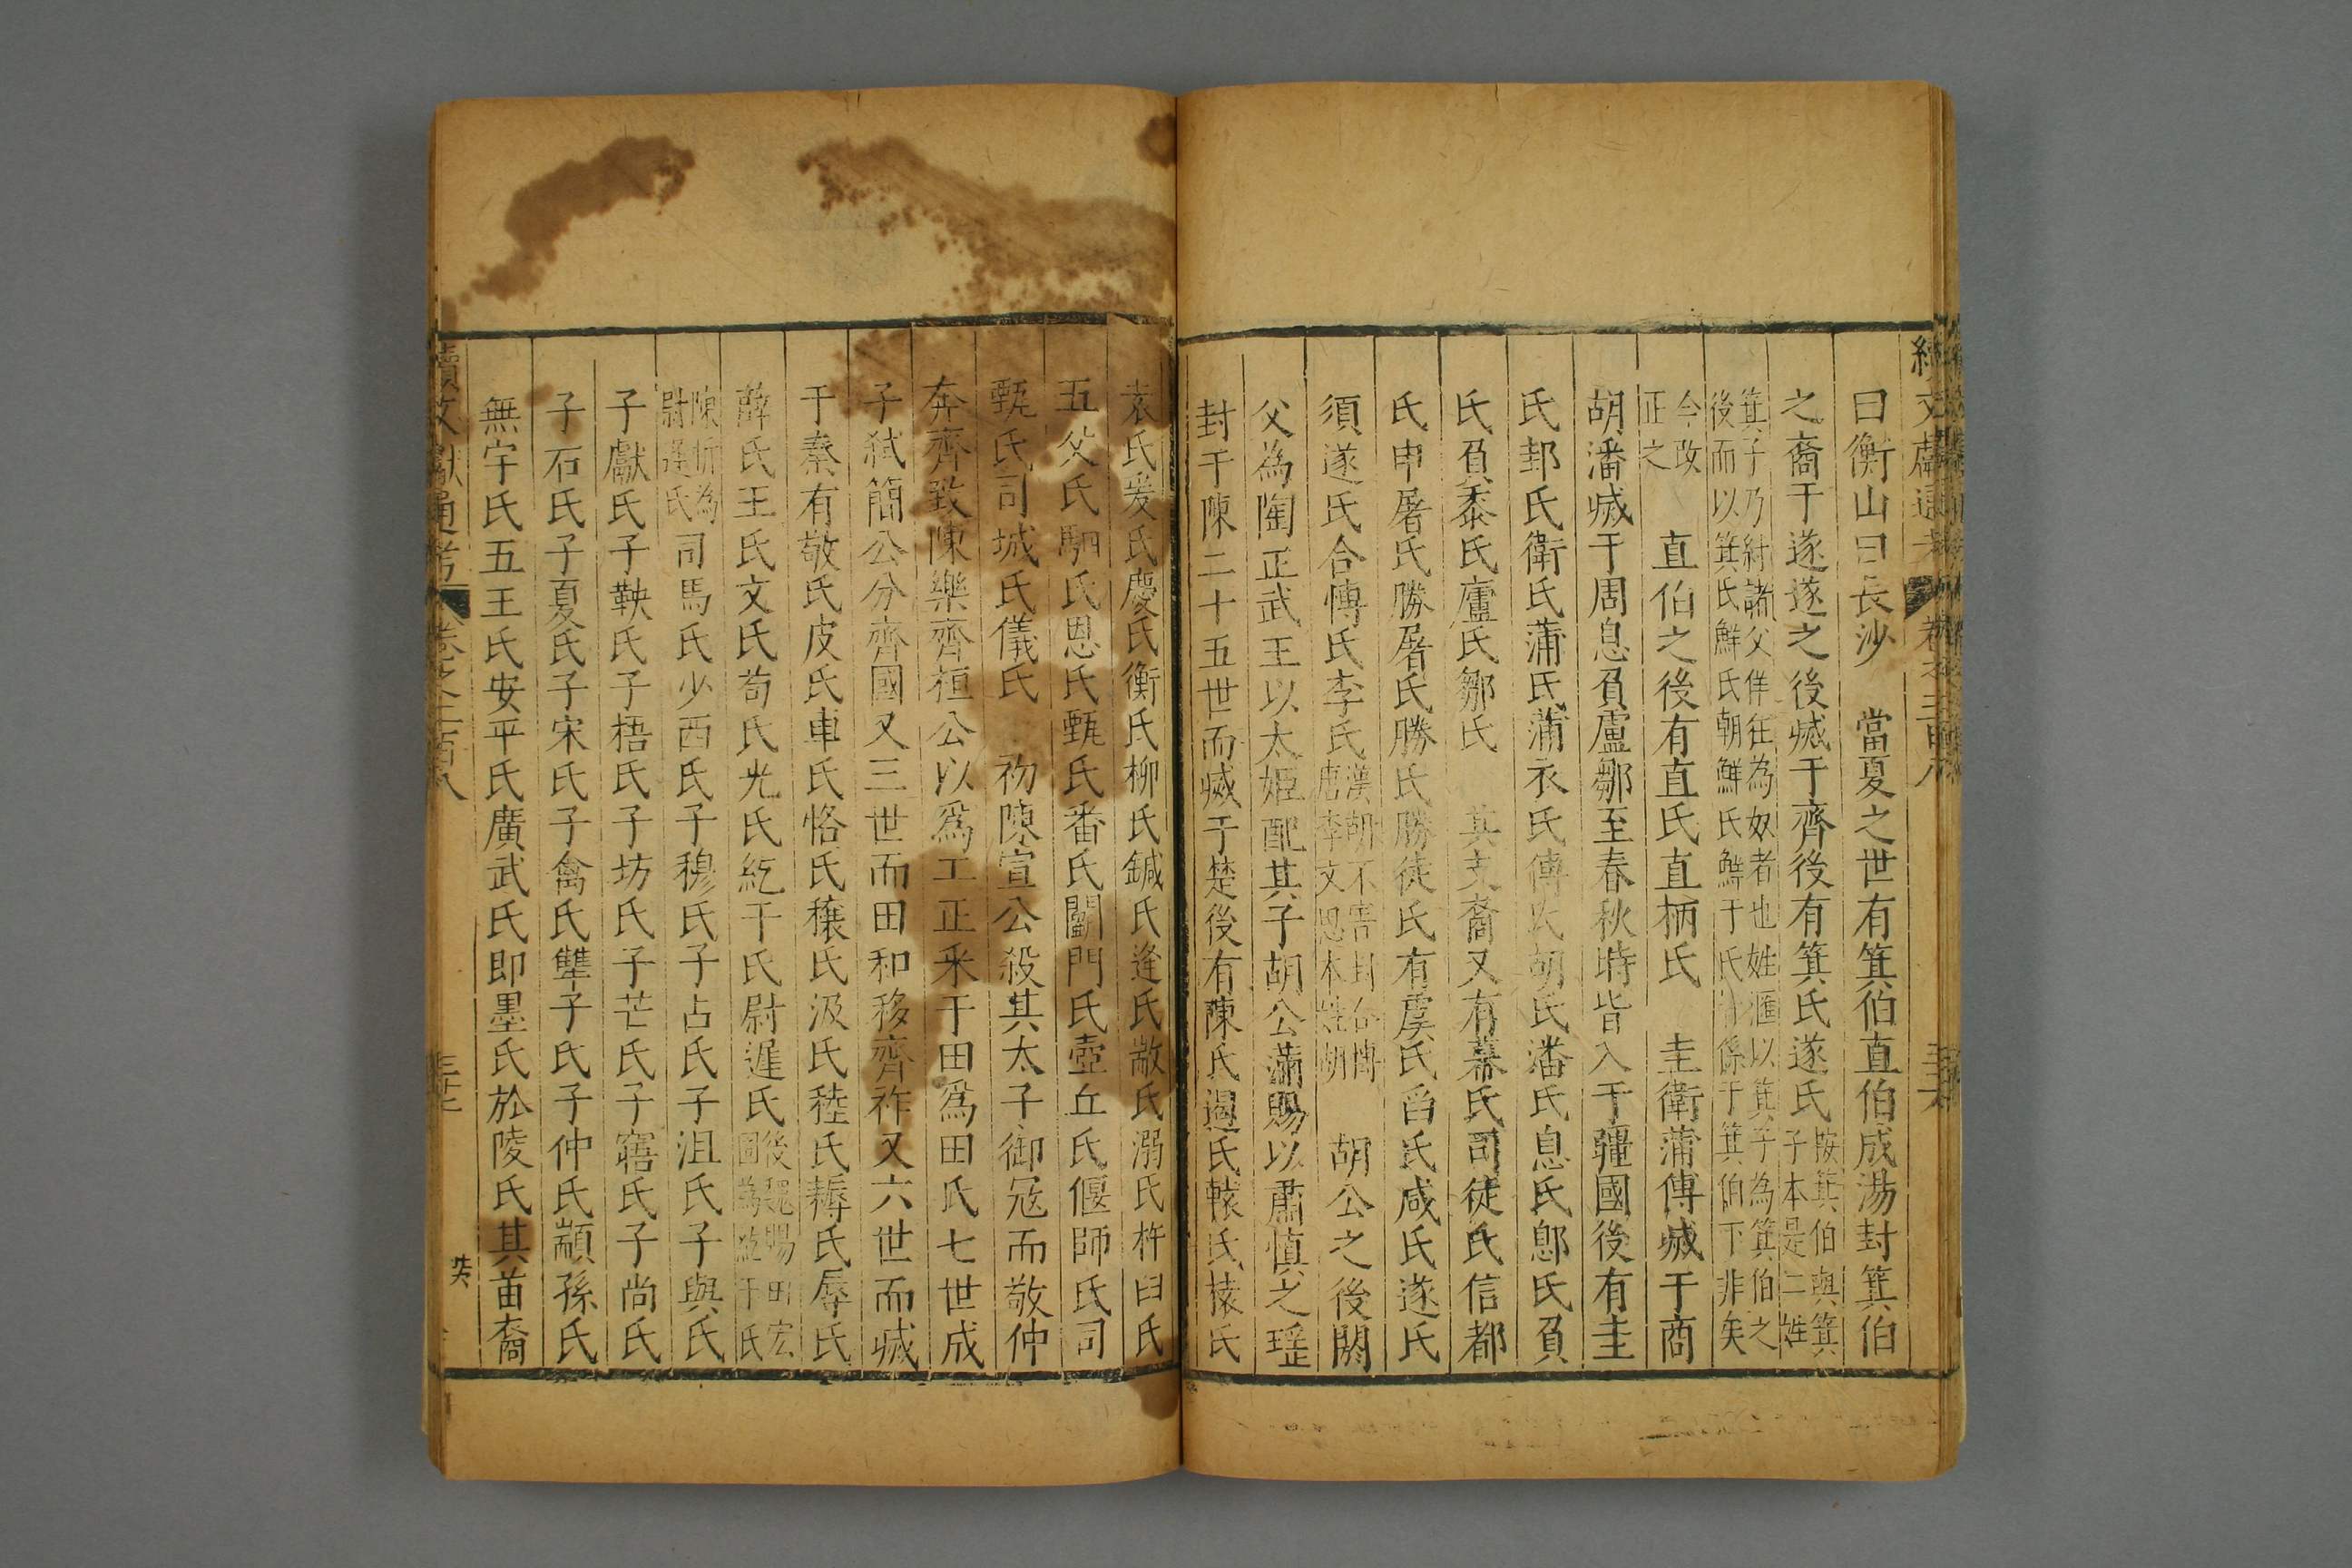 曰衡山曰長沙　當夏之世有箕伯直伯成湯封箕伯
之裔于遂遂之後㓕于齊後有箕氏遂氏按箕伯與箕子本是二姓
箕子乃紂諸父佯狂為奴者也姓滙以箕子為箕伯之
後而以箕氏鮮氏朝鮮氏鮮于氏皆係于箕伯下非矣
今改正之　直伯之後有直氏直柄氏　圭衛蒲傅㓕于商
胡潘㓕于周息負盧鄒至春秋時皆入于疆國後有圭
氏邽氏衛氏蒲氏蒲衣氏傅氏胡氏潘氏息氏鄎氏負
氏負黍氏廬氏鄒氏　其支裔又有幕氏司徒氏信都
氏申屠氏勝屠氏勝氏勝徒氏有虞氏舀氏咸氏遂氏
須遂氏合傅氏李氏　胡公之後閼
父為陶正武王以太姬配其子胡公滿賜以肅慎之珵
封于陳二十五世而㓕于楚後有陳氏遏氏轅氏榬氏
袁氏爰氏慶氏衡氏柳氏鍼氏逢氏敞氏溺氏杵臼氏
五父氏駟氏恩氏甄氏番氏鬭門氏壺丘氏偃師氏司
甄氏司城氏儀氏　初陳宣公殺其太子御冦而敬仲
奔齊致陳樂齊桓公以爲工正釆于田爲田氏七世成
子弒簡公分齊國又三世而田和移齊祚又六世而㓕
于秦有敬氏皮氏車氏恪氏穰氏汲氏稑氏耨氏辱氏
薛氏王氏文氏茍氏光氏紇干氏尉遲氏後魏賜田宏為紇干氏
陳忻為尉遲氏司馬氏少西氏子穆氏子占氏子沮氏子與氏
子獻氏子鞅氏子梧氏子坊氏子芒氏子寤氏子尚氏
子石氏子夏氏子宋氏子禽氏犨子氏子仲氏顓孫氏
無宇氏五王氏安平氏廣武氏即墨氏於陵氏其苗裔
續文獻通考　卷之二百八